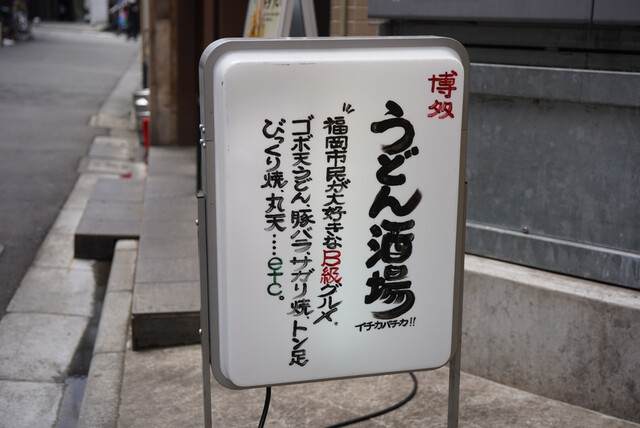 博多
うどん酒場
イチカバチカ!!
"福岡市民が大好きなB級グルメ"
ゴボ天うどん、豚バラ、サガリ焼、トン足
びっくり焼、丸天……etc。